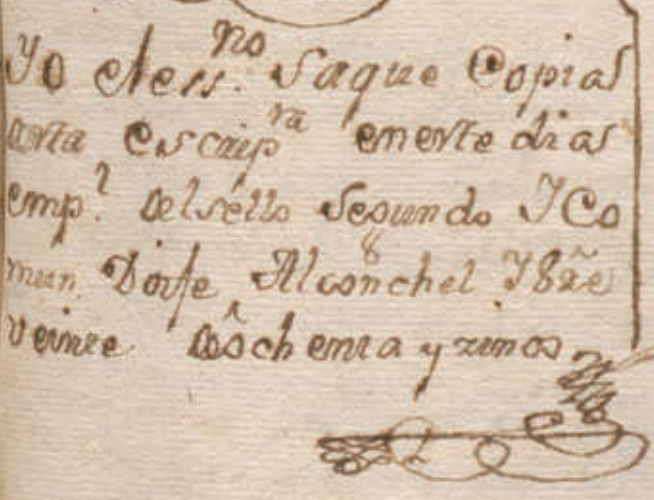 Yo el ess.no Saque Copias
desta escrip.ra en este dias
en p.l del sello Segundo Y Co
mun. Doyfe Alconchel Y 8re
veinte de ochenta y zinco